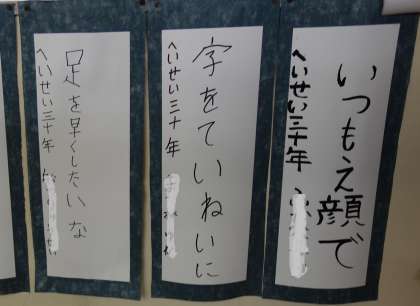 いつもえ顔で
へいせい三十年
字をていねいに
へいせい三十年
足を早くしたいな
へいせい三十年